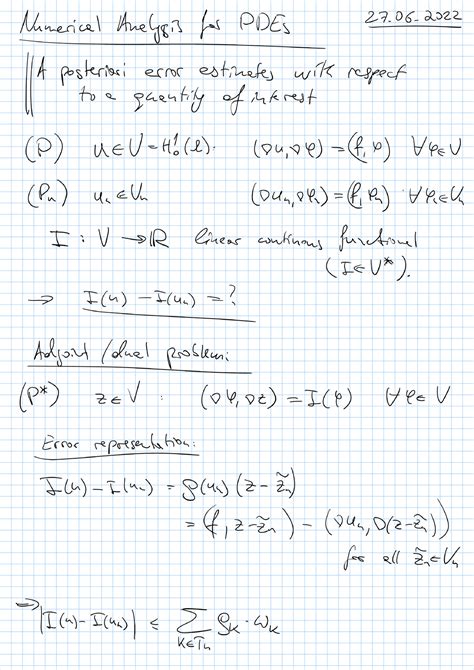 Numerical Analysis for PDEs 27.06.2022
A posteriori error estimates with respect
to a quantity of interest
(P) u ∈ V = H₀¹(Ω). (∇u, ∇φ) = (f, φ) ∀φ ∈ V
(Pₕ) uₕ ∈ Vₕ (∇uₕ, ∇φₕ) = (f, φₕ) ∀φₕ ∈ Vₕ
I : V → ℝ linear continuous functional
(I ∈ V*).
→ I(u) − I(uₕ) = ?
Adjoint / dual problem:
(P*) z ∈ V : (∇φ, ∇z) = I(φ) ∀φ ∈ V
Error representation:
I(u) − I(uₕ) = ρ(uₕ)(z − z̃ₕ)
= (f, z − z̃ₕ) − (∇uₕ, ∇(z − z̃ₕ))
for all z̃ₕ ∈ Vₕ
⇒ |I(u) − I(uₕ)| ≤ ∑_{K∈Tₕ} ρ_K · ω_K